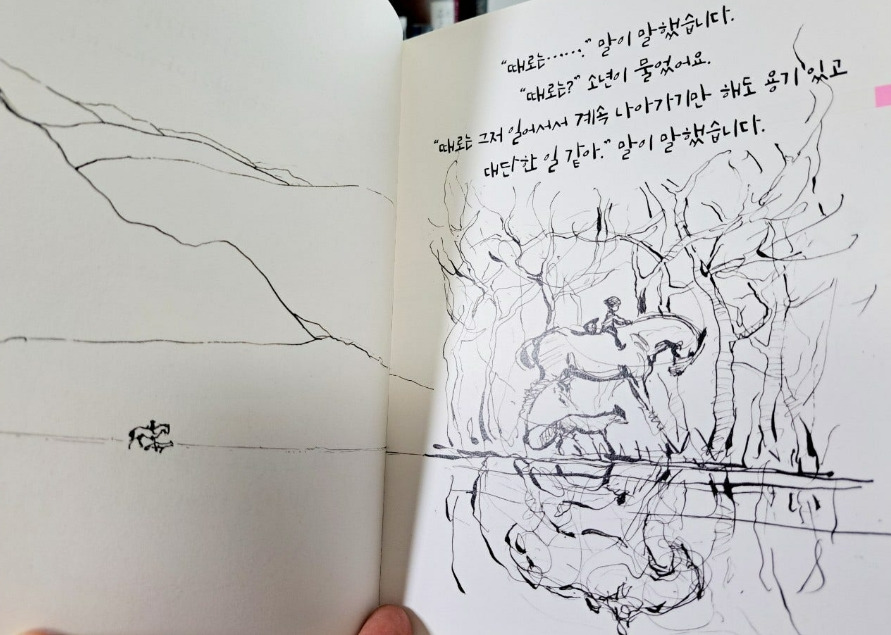 “때로는……” 말이 말했습니다.
“때로는?” 소년이 물었어요.
“때로는 그저 일어서서 계속 나아가기만 해도 용기 있고
대단한 일 같아.” 말이 말했습니다.